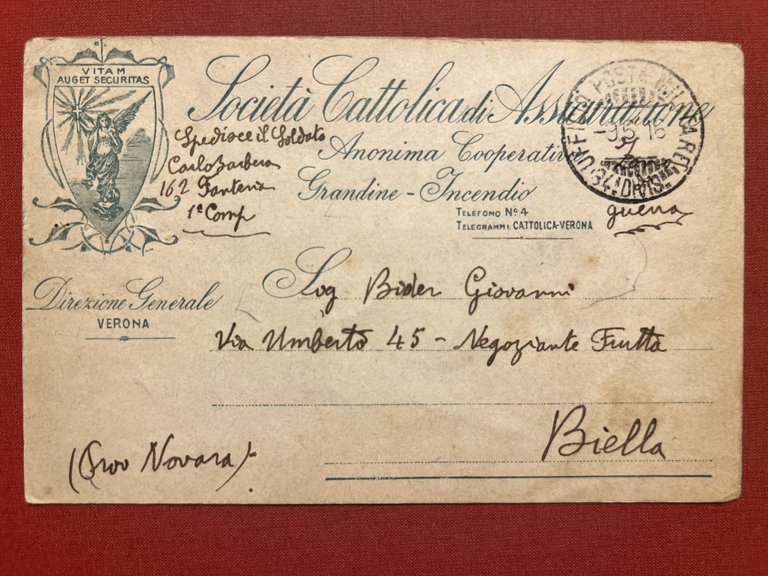 VITAM
AUGET SECURITAS
Società Cattolica di Assicurazione
Anonima Cooperativa
Grandine - Incendio
TELEFONO Nº 4
TELEGRAMMI: CATTOLICA-VERONA
Spedisce il Soldato
Carlo Barbera
162 Fanteria
1ª Comp
POSTA MILITARE
34ª DIVIS
guerra
Direzione Generale
VERONA
Sig Bider Giovanni
Via Umberto 45 - Negoziante Frutta
Biella
(Prov Novara)